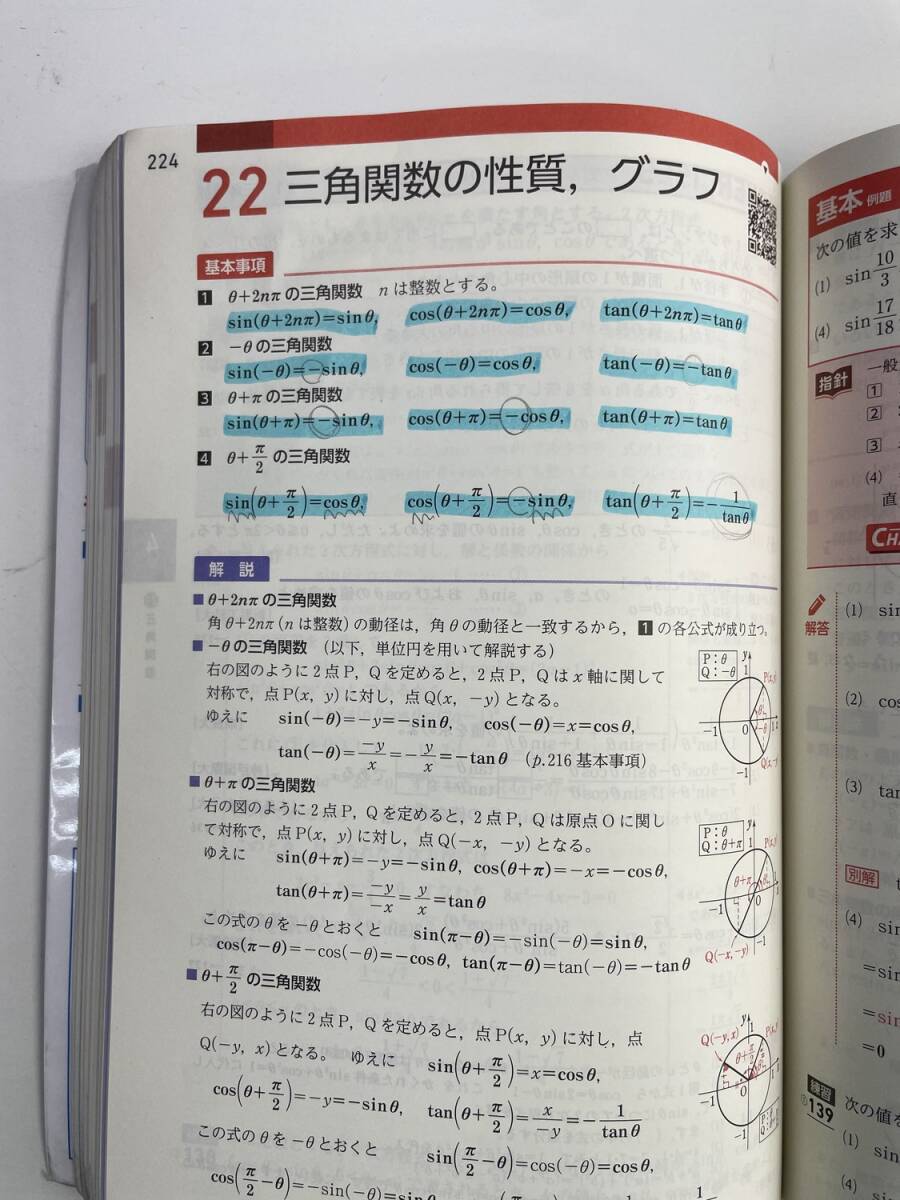 224
22 三角関数の性質，グラフ
基本事項
1 θ+2nπ の三角関数　n は整数とする。
sin(θ+2nπ)=sinθ,　cos(θ+2nπ)=cosθ,　tan(θ+2nπ)=tanθ
2 -θ の三角関数
sin(-θ)=-sinθ,　cos(-θ)=cosθ,　tan(-θ)=-tanθ
3 θ+π の三角関数
sin(θ+π)=-sinθ,　cos(θ+π)=-cosθ,　tan(θ+π)=tanθ
4 θ+π/2 の三角関数
sin(θ+π/2)=cosθ,　cos(θ+π/2)=-sinθ,　tan(θ+π/2)=-1/tanθ
解 説
■ θ+2nπ の三角関数
角 θ+2nπ (n は整数) の動径は，角 θ の動径と一致するから，1 の各公式が成り立つ。
■ -θ の三角関数　(以下，単位円を用いて解説する)
右の図のように2点P，Qを定めると，2点P，Qは x 軸に関して
対称で，点P(x, y)に対し，点Q(x, -y)となる。
ゆえに　sin(-θ)=-y=-sinθ,　cos(-θ)=x=cosθ,
tan(-θ)=-y/x=-y/x=-tanθ　(p.216 基本事項)
P：θ
Q：-θ
y
1
-1
0
-1
■ θ+π の三角関数
右の図のように2点P，Qを定めると，2点P，Qは原点Oに関し
て対称で，点P(x, y)に対し，点Q(-x, -y)となる。
ゆえに　sin(θ+π)=-y=-sinθ, cos(θ+π)=-x=-cosθ,
tan(θ+π)=-y/-x=y/x=tanθ
この式の θ を -θ とおくと　sin(π-θ)=-sin(-θ)=sinθ,
cos(π-θ)=-cos(-θ)=-cosθ, tan(π-θ)=tan(-θ)=-tanθ
P：θ
Q：θ+π
y
1
θ+π
-1
0
-1
Q(-x, -y)
■ θ+π/2 の三角関数
右の図のように2点P，Qを定めると，点P(x, y)に対し，点
Q(-y, x)となる。　ゆえに　sin(θ+π/2)=x=cosθ,
cos(θ+π/2)=-y=-sinθ,　tan(θ+π/2)=x/-y=-1/tanθ
この式の θ を -θ とおくと　sin(π/2-θ)=cos(-θ)=cosθ,
Q(-y, x)
y
1
-1
0
-1
基本 例題
次の値を求
(1) sin 10/3
(4) sin 17/18
指針
一般
1
2
3
(4)
直
解答
(1) sin
(2) cos
(3) tan
別解
(4) sin
=sin
=sin
=0
練習
139
次の値を
(1) sin
(4) sin